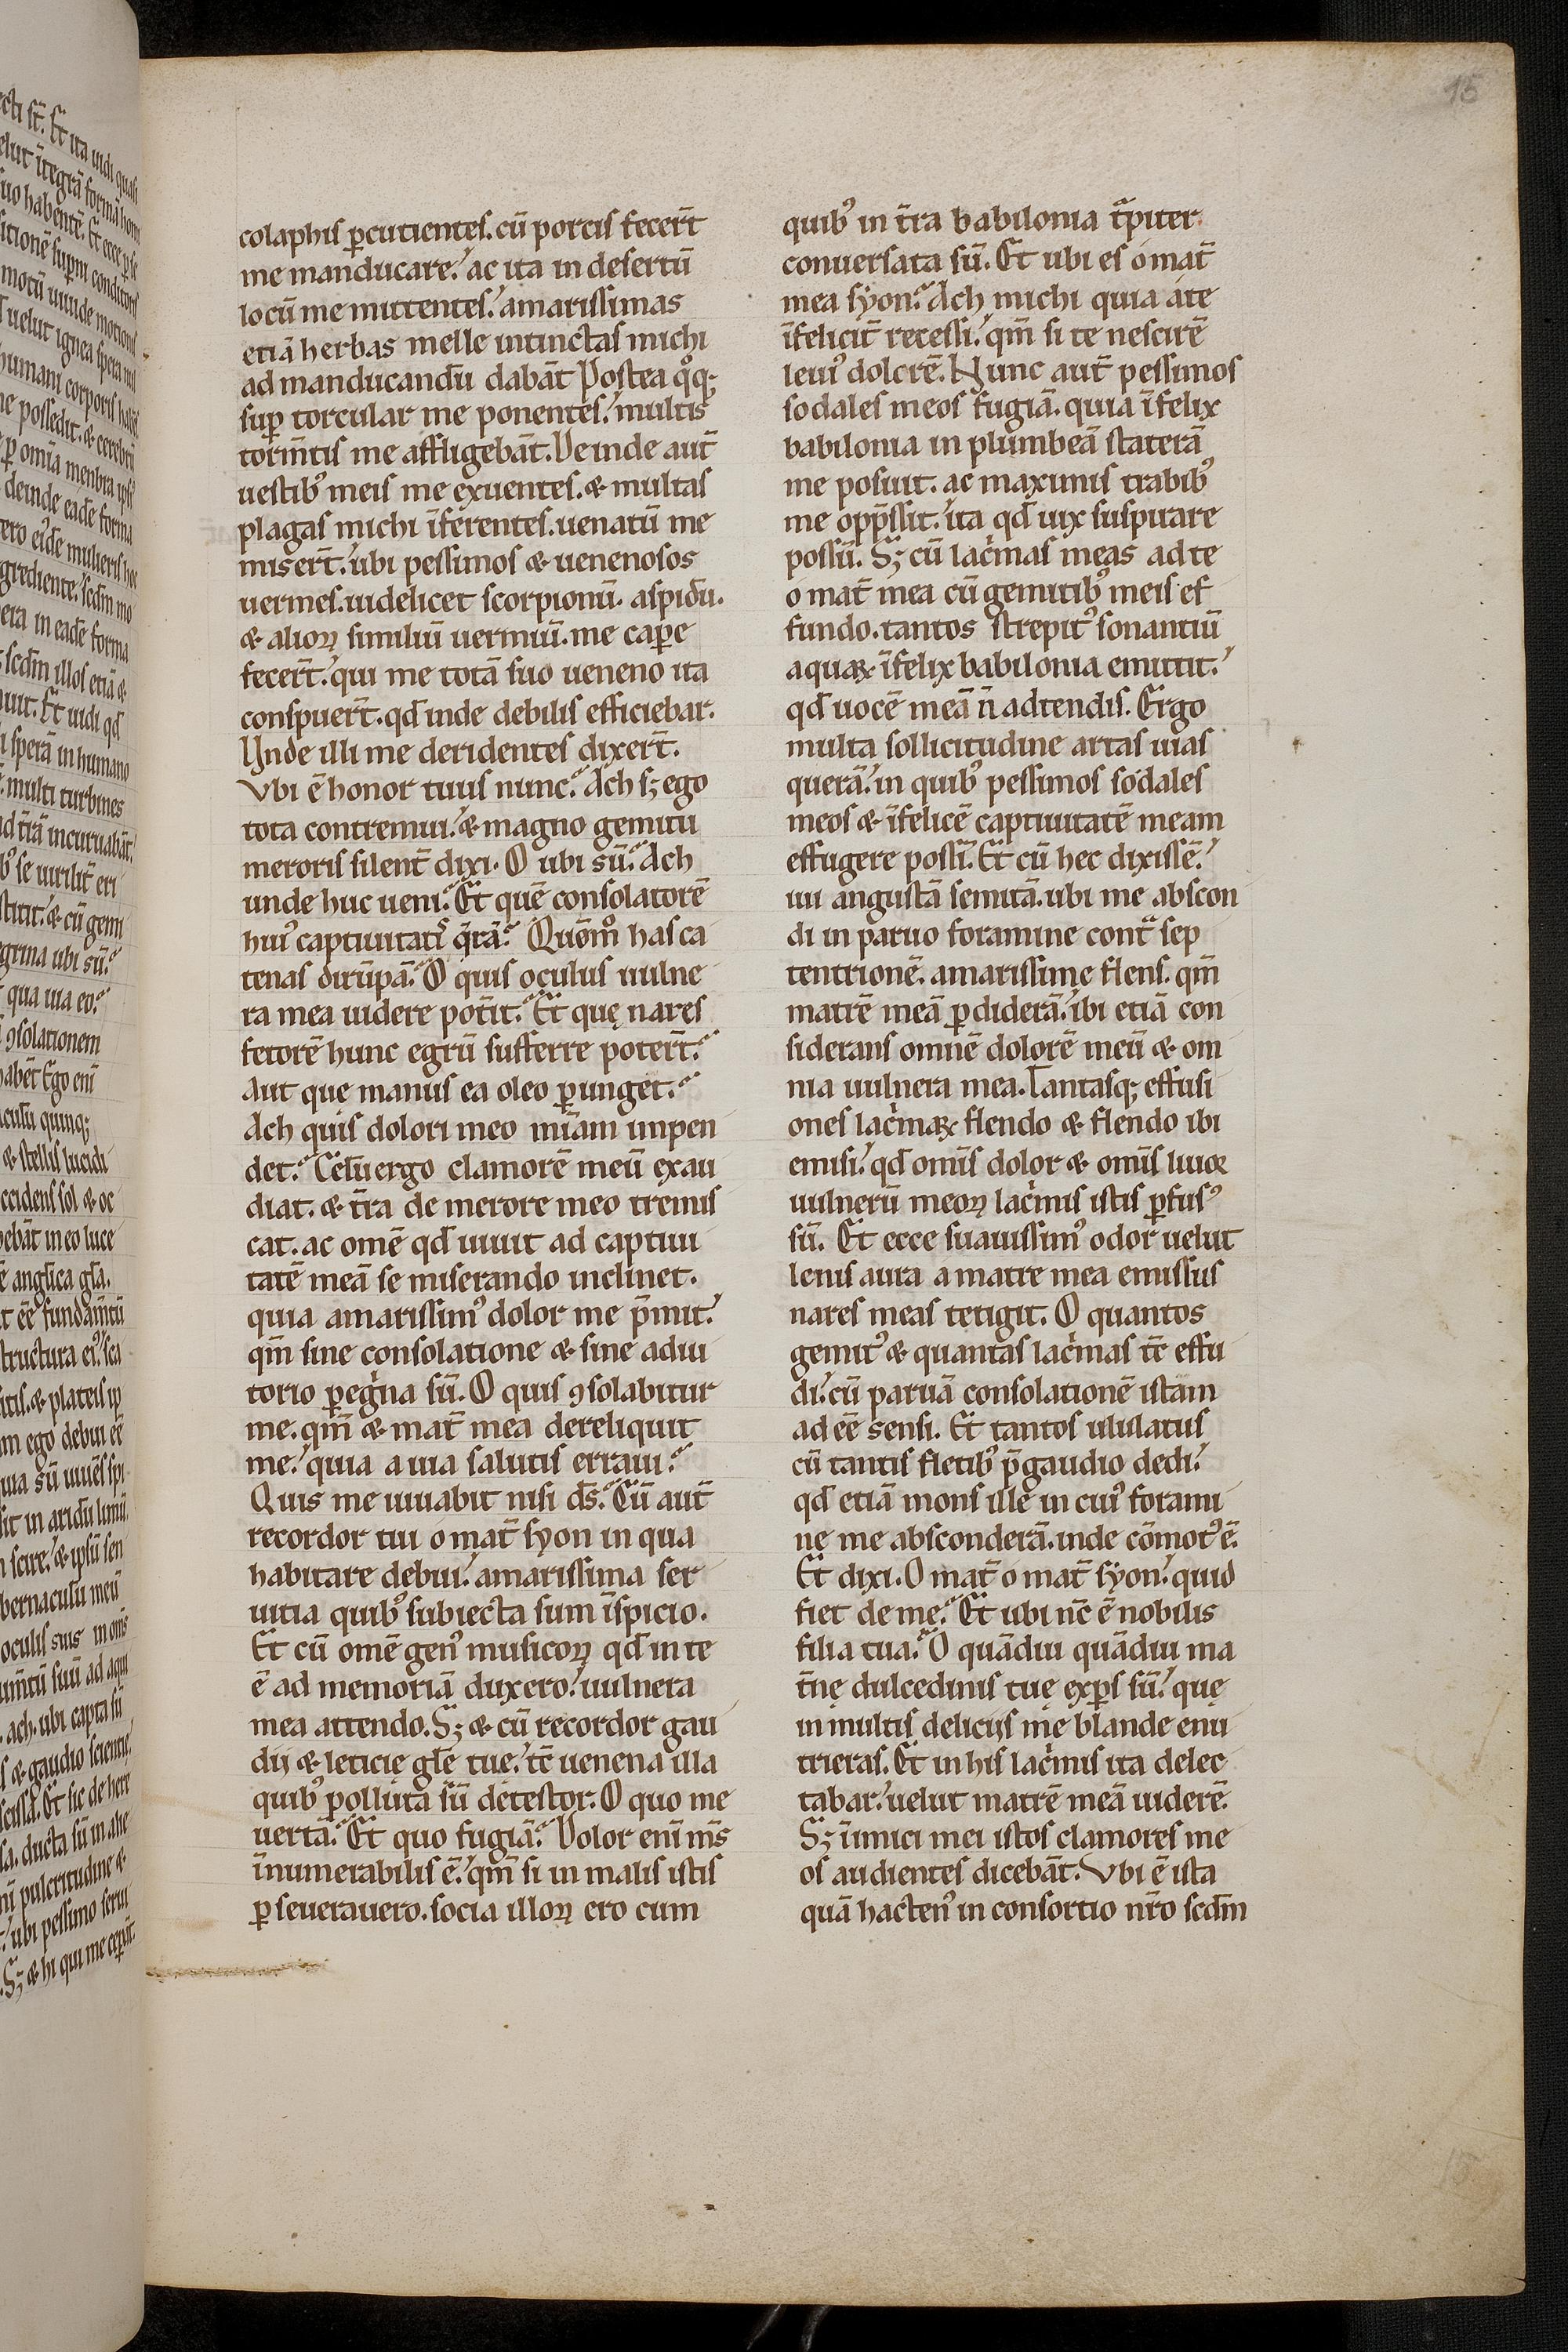 15
colaphis ꝑcutientes. cū porcis fecer̄t
me manducare. ac ita in desertū
locū me mittentes. amarissimas
etiā herbas melle intinctas michi
ad manducandū dabāt. Postea qͦq;
suꝑ torcular me ponentes. multis
torm̄tis me affligebāt. Deinde aut̄
uestibꝰ meis me exuentes. & multas
plagas michi īferentes. uenatū me
miser̄t. ubi pessimos & uenenosos
uermes. uidelicet scorpionū. aspidū.
& alioꝝ similiū uermiū. me caꝑe
fecer̄t. qui me totā suo ueneno ita
conspuer̄t. qđ inde debilis efficiebar.
Unde illi me deridentes dixer̄t.
Vbi ē honor tuus nunc. Ach sꝫ ego
tota contremui. & magno gemitu
meroris silent̄ dixi. O ubi sū. Ach
unde huc ueni. Et quē consolatorē
huiꝰ captiuitatis q̄rā. Quōmͦ has ca
tenas dirūpā. O quis oculus uulne
ra mea uidere pot̄it. Et quę nares
fetorē hunc egrū sufferre poter̄t.
Aut que manus ea oleo ꝑunget.
Ach quis dolori meo mīam inpen
det. Celū ergo clamorē meū exau
diat. & t̄ra de merore meo tremis
cat. ac omē qđ uiuit ad captiui
tatē meā se miserando inclinet.
quia amarissimꝰ dolor me p̄mit.
qm̄ sine consolatione & sine adiu
torio ꝑegͥna sū. O quis ꝯsolabitur
me. qm̄ & mat̄ mea dereliquit
me. quia a uia salutis erraui.
Quis me iuuabit nisi ds̄. Cū aut̄
recordor tui o mat̄ syon in qua
habitare debui. amarissima ser
uitia quibꝰ subiecta sum īspicio.
Et cū omē genꝰ musicoꝝ qđ in te
ē ad memoriā duxero. uulnera
mea attendo. Sꝫ & cū recordor gau
dij & leticię glē tue. tē uenena illa
quibꝰ polluta sū detestor. O quo me
uertā. Et quo fugiā. Dolor enī ms̄
īnumerabilis ē. qm̄ si in malis istis
ꝑseuerauero. socia illoꝝ ero cum
quibꝰ in t̄ra babilonia tͣpiter
conuersata sū. Et ubi es o mat̄
mea syon. Ach michi quia a te
īfelicit̄ recessi. qm̄ si te nescirē
leuiꝰ dolerē. Nunc aut̄ pessimos
sodales meos fugiā. quia īfelix
babilonia in plumbeā staterā
me posuit. ac maximis trabibꝰ
me opp̄ssit. ita qđ uix suspirare
possū. Sꝫ cū lacͥmas meas ad te
o mat̄ mea cū gemitibꝰ meis ef
fundo. tantos strepitꝰ sonantiū
aquaꝝ īfelix babilonia emittit.
qđ uocē meā n̄ adtendis. Ergo
multa sollicitudine artas uias
querā. in quibꝰ pessimos sodales
meos & īfelicē captiuitatē meam
effugere possī. Et cū hec dixissē.
iui angustā semitā. ubi me abscon
di in paruo foramine contͣ sep
tentrionē. amarissime flens. qm̄
matrē meā ꝑdiderā. ibi etiā con
siderans omnē dolorē meū & om
nia uulnera mea. Tantasq; effusi
ones lacͥmaꝝ flendo & flendo ibi
emisi. qđ omīs dolor & omīs liuor
uulnerū meoꝝ lacͥmis istis ꝑfusꝰ
sū. Et ecce suauissimꝰ odor uelut
lenis aura a matre mea emissus
nares meas tetigit. O quantos
gemitꝰ & quantas lacͥmas tē effu
di. cū paruā consolationē istam
adeē sensi. Et tantos ululatus
cū tantis fletibꝰ p̄ gaudio dedi.
qđ etiā mons ille in cuiꝰ forami
ne me absconderā. inde cōmotꝰ ē.
Et dixi. O mat̄ o mat̄ syon. quid
fiet de me. Et ubi nc̄ ē nobilis
filia tua. O quādiu quādiu ma
t̄nę dulcedinis tuę exꝑs sū. quę
in multis delicijs me blande enu
trieras. Et in his lacͥmis ita delec
tabar. uelut matrē meā uiderē.
Sꝫ inīmici mei istos clamores me
os audientes dicebāt. Vbi ē ista
quā hactenꝰ in consortio nr̄o scdm̄